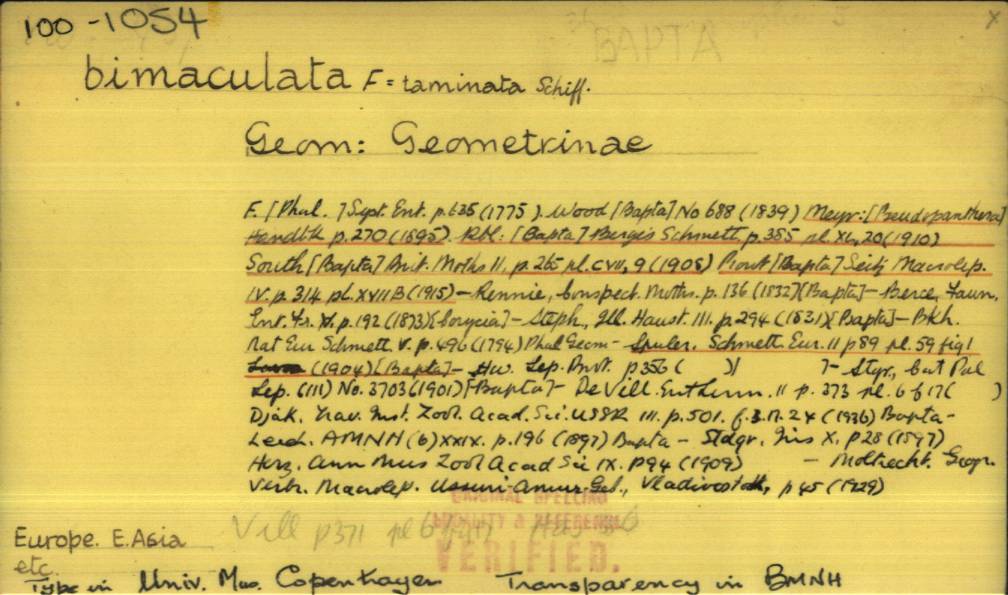 100-1054
BAPTA
bimaculata F = taminata Schiff.
Geom: Geometrinae
F. [Phal. ] Syst. Ent. p.635 (1775). Wood [Bapta] No 688 (1839) Meyr: [Pseudopanthera]
Handbk p.270 (1895). Rbl: [Bapta] Berge's Schmett p.385 pl. XL, 20 (1910)
South [Bapta] Brit. Moths II, p.265 pl. CVII, 9 (1908) Prout [Bapta] Seitz Macrolep.
IV. p.314 pl. XVII B (1915) - Rennie, Conspect. Moths. p.136 (1832) [Bapta] - Berce, Faun.
Ent. Fr. V. p.192 (1873) [Corycia] - Steph, Ill. Haust. III. p.294 (1831) [Bapta] - Bkh.
Nat Eur Schmett. V. p.496 (1794) Phal Geom - Spuler. Schmett. Eur. II p89 pl. 59 fig 1
(1904) [Bapta] - Hw. Lep. Brit. p356 ( )[ ] - Stgr, Cat Pal
Lep. (III) No. 3703 (1901) [Bapta] - De Vill. Ent Linn. II p. 373 pl. 6 f 17 ( )
Djak. Trav. Inst. Zool. Acad. Sci. USSR III. p.501. f. 3. 17. 24 (1936) Bapta -
Leech. AMNH (6) XXIX. p.196 (1897) Bapta - Stdgr. Iris X. p28 (1897)
Herz. Ann Mus Zool Acad Sci IX. p94 (1909) - Moltrecht. Geogr.
Verbr. Macrolep. Ussuri-Amur-Geb., Vladivostok, p45 (1929)
ORIGINAL SPELLING
LOCALITY & REFERENCE
VERIFIED.
Vill p371 pl 6 fig 17
Europe. E. Asia
etc.
Type in Univ. Mus. Copenhagen Transparency in BMNH